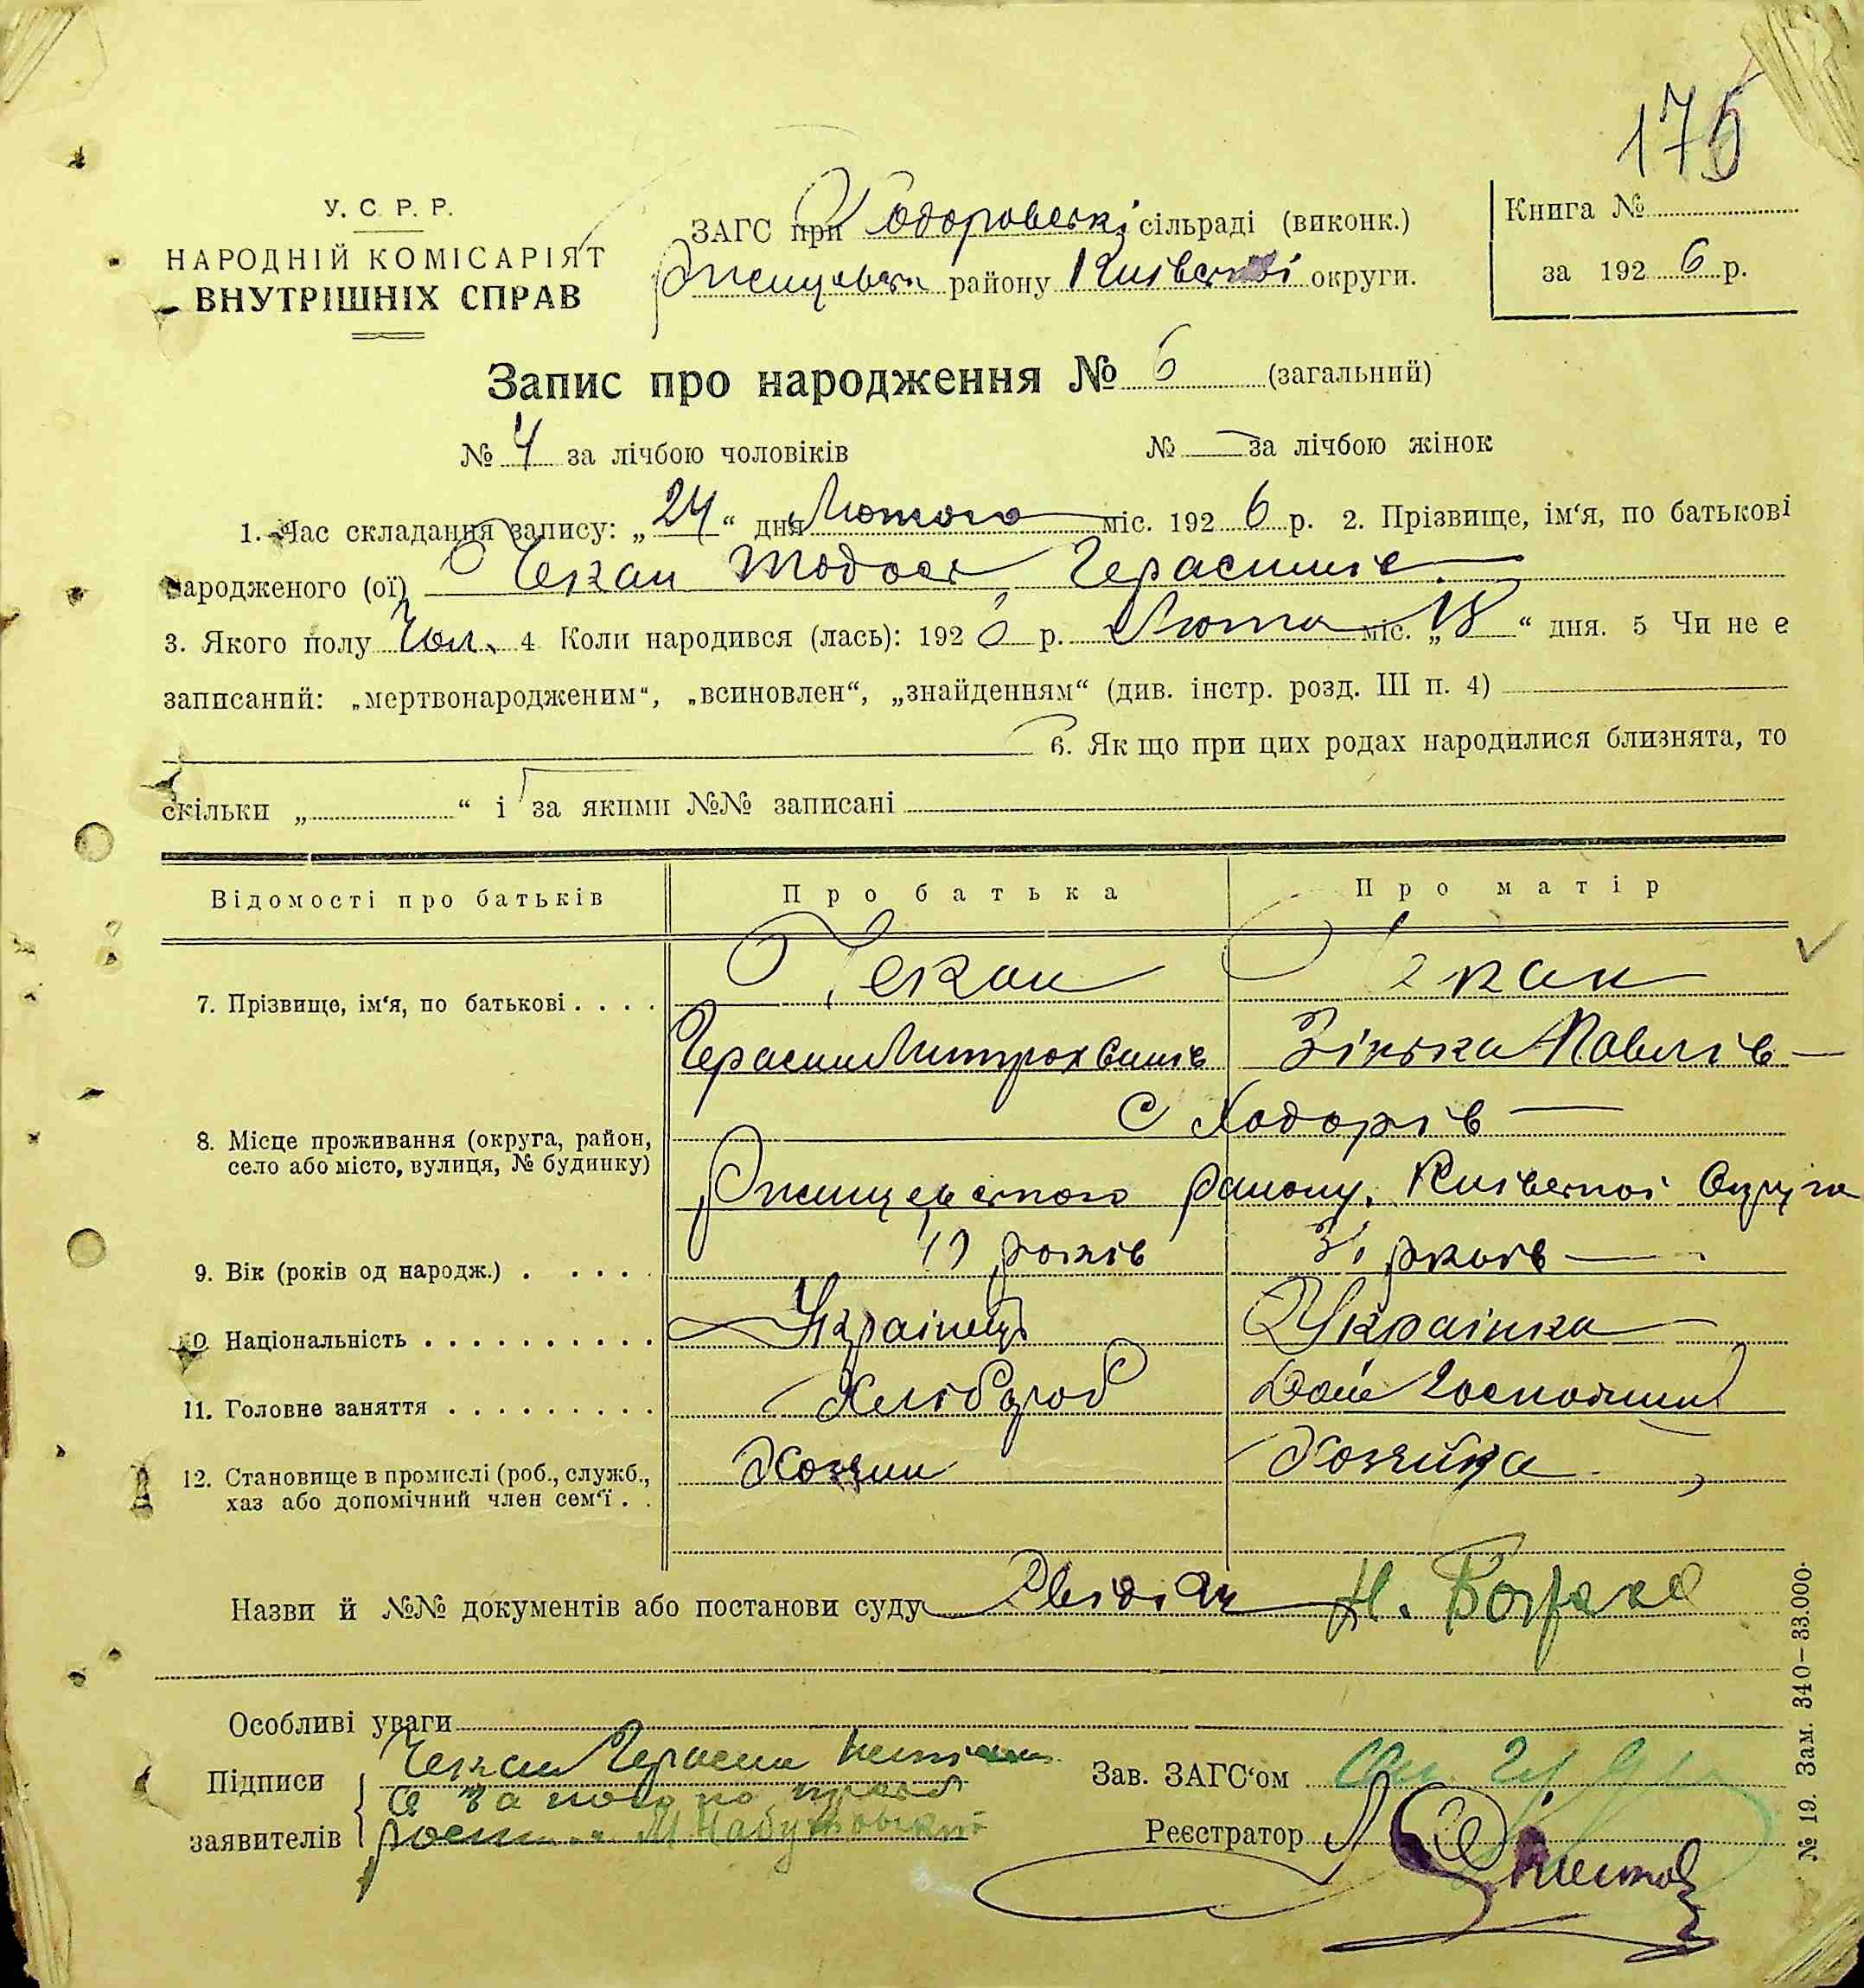 175
У. С. Р. Р.
НАРОДНІЙ КОМІСАРІЯТ
ВНУТРІШНІХ СПРАВ
ЗАГС при Ходоровскі сільраді (виконк.)
району Київскої округи.
Книга №
за 1926 р.
Запис про народження № 6 (загальний)
№ 4 за лічбою чоловіків № — за лічбою жінок
1. Час складання запису: „24“ дня Лютого міс. 1926 р. 2. Прізвище, ім‘я, по батькові
народженого (ої) Чекан Тодось Герасимів
3. Якого полу Чол. 4 Коли народився (лась): 1926 р. Люта міс. „18“ дня. 5 Чи не є
записаний: „мертвонародженим“, „всиновлен“, „знайденням“ (див. інстр. розд. III п. 4)
6. Як що при цих родах народилися близнята, то
скільки „ “ і за якими №№ записані
Відомості про батьків Про батька Про матір
7. Прізвище, ім‘я, по батькові Чекан Чекан
Герасим Митрохванів Зінька Павлів
8. Місце проживання (округа, район, село або місто, вулиця, № будинку) С Ходорів
Ржищевського району. Київскої Округи
9. Вік (років од народж.) років 31 років
10. Національність Українець Українка
11. Головне заняття Хлібороб Дом Господиня
12. Становище в промислі (роб., служб., хаз або допомічний член сем‘ї Хозяин Хозяйка
Назви й №№ документів або постанови суду
Особливі уваги
Підписи заявителів Чекан Герасим
а за него по
М Набутовский
Зав. ЗАГС‘ом
Реєстратор
№ 19. Зам. 340—33.000.